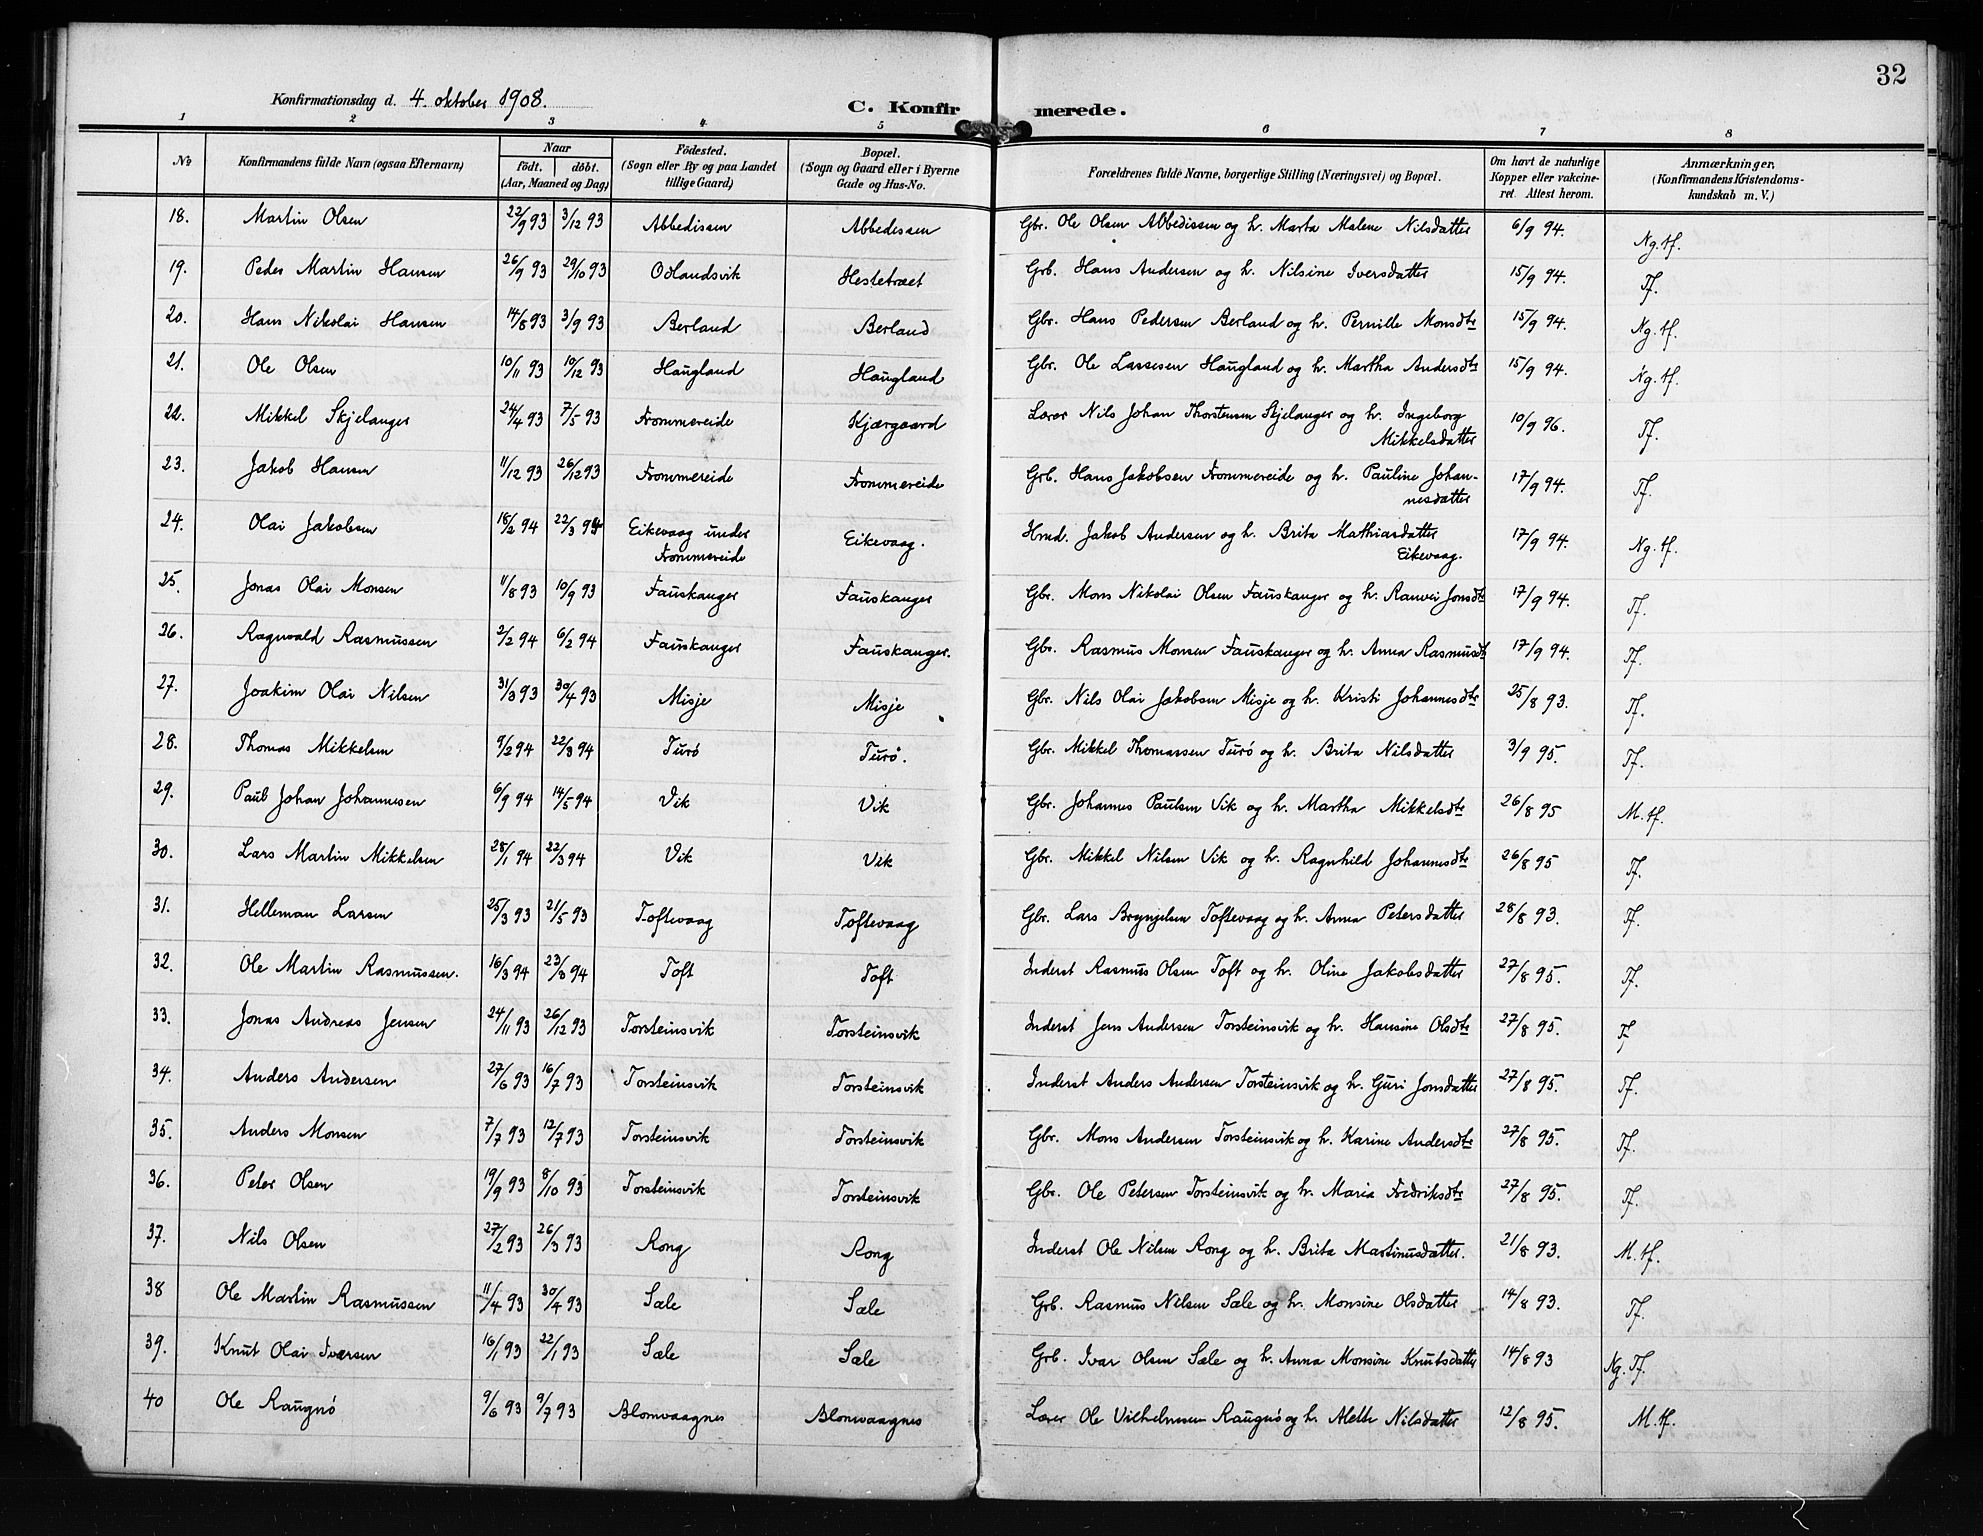 32
Konfirmationsdag d. 4. oktober 1908.
C. Konfirmerede.
1 2 3 4 5 6 7 8
No
Konfirmandens fulde Navn (ogsaa Efternavn)
Naar
født. døbt.
(Aar, Maaned og Dag)
Fødested.
(Sogn eller By og paa Landet
tillige Gaard)
Bopæl.
(Sogn og Gaard eller i Byerne
Gade og Hus-No.
Forældrenes fulde Navne, borgerlige Stilling (Næringsvei) og Bopæl.
Om havt de naturlige
Kopper eller vakcine-
ret. Attest herom.
Anmærkninger,
(Konfirmandens Kristendoms-
kundskab m. V.)
18. Martin Olsen 22/9 93 3/12 93 Abbedissen Abbedissen Gbr. Ole Olsen Abbedissen og h. Marta Malene Nilsdatter 6/9 94. Ng. tf.
19. Peder Martin Hansen 26/9 93 29/10 93 Odlandsvik Hestetræet Grb. Hans Andersen og h. Nilsine Iversdatter 15/9 94. Tf.
20. Hans Nikolai Hansen 14/8 93 3/9 93 Berland Berland Gbr. Hans Pedersen Berland og h. Pernille Monsdtr 15/9 94. Ng. tf.
21. Ole Olsen 10/11 93 10/12 93 Haugland Haugland Gbr. Ole Lassesen Haugland og h. Martha Andersdtr 15/9 94. Ng. tf.
22. Mikkel Skjelanger 24/4 93 7/5 93 Frommereide Kjærgaard Lærer Nils Johan Thorstensen Skjelanger og h. Ingeborg
Mikkelsdatter 10/9 96. Tf.
23. Jakob Hansen 11/12 93 26/12 93 Frommereide Frommereide Grb. Hans Jakobsen Frommereide og h. Pauline Johan-
nesdatter 17/9 94. Tf.
24. Olai Jakobsen 18/2 94 22/3 94 Eikevaag under
Frommereide Eikevaag. Hmd. Jakob Andersen og h. Brita Mathiasdatter
Eikevaag. 17/9 94. Ng. tf.
25. Jonas Olai Monsen 11/8 93 10/9 93 Fauskanger Fauskanger Gbr. Mons Nikolai Olsen Fauskanger og h. Ranvei Jonsdtr 17/9 94. Tf.
26. Ragnvald Rasmussen 2/2 94 6/2 94 Fauskanger Fauskanger. Gbr. Rasmus Monsen Fauskanger og h. Anna Rasmusdtr 17/9 94. Tf.
27. Joakim Olai Nilsen 31/3 93 30/4 93 Misje Misje Gbr. Nils Olai Jakobsen Misje og h. Kristi Johannesdtr 25/8 93. Tf.
28. Thomas Mikkelsen 9/2 94 22/3 94 Turø Turø. Gbr. Mikkel Thomassen Turø og h. Brita Nilsdatter 3/9 95. Tf.
29. Paul Johan Johannesen 6/9 94 14/5 94 Vik Vik Gbr. Johannes Paulsen Vik og h. Martha Mikkelsdtr 26/8 95 M. tf.
30. Lars Martin Mikkelsen 28/1 94 22/3 94 Vik Vik Gbr. Mikkel Nilsen Vik og h. Ragnhild Johannesdtr 26/8 95 Tf.
31. Helleman Larsen 25/3 93 21/5 93 Toftevaag Toftevaag Gbr. Lars Brynjelsen Toftevaag og h. Anna Petersdatter 28/8 93. Tf.
32. Ole Martin Rasmussen. 16/3 94 23/3 94 Toft Toft Inderst Rasmus Olsen Toft og h. Oline Jakobsdatter 27/8 95. Tf.
33. Jonas Andreas Jensen 24/11 93 26/12 93 Torsteinsvik Torsteinsvik Inderst Jens Andersen Torsteinsvik og h. Hansine Olsdtr 27/8 95. Tf
34. Anders Andersen 27/6 93 16/7 93 Torsteinsvik Torsteinsvik Inderst Anders Andersen Torsteinsvik og h. Guri Jonsdatter 27/8 95. Tf.
35. Anders Monsen 7/7 93 12/7 93 Torsteinsvik Torsteinsvik Gbr. Mons Andersen Torsteinsvik og h. Karine Andersdtr 27/8 95. Tf.
36. Peter Olsen 19/9 93 8/10 93 Torsteinsvik Torsteinsvik Gbr. Ole Petersen Torsteinsvik og h. Maria Fredriksdtr 27/8 95. Tf.
37. Nils Olsen 27/2 93 26/3 93 Rong Rong Inderst Ole Nilsen Rong og h. Brita Martinusdatter. 21/8 93. M. tf.
38 Ole Martin Rasmussen 11/4 93 30/4 93 Sæle Sæle Grb. Rasmus Nilsen Sæle og h. Monsine Olsdatter 14/8 93. Tf.
39. Knut Olai Iversen 16/1 93 22/1 93 Sæle Sæle Grb. Ivar Olsen Sæle og h. Anna Monsine Knutsdatter 14/8 93 Ng. Tf.
40 Ole Raugnø 9/6 93 9/7 93 Blomvaagnes Blomvaagnes Lærer Ole Vilhelmsen Raugnø og h. Alette Nilsdatter 12/8 95. M. tf.